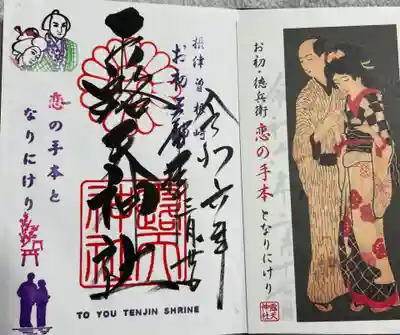 お初・徳兵衛 恋の手本となりにけり
露天神社
摂津曽根崎
令和六年
お初天神
露天神社
恋の手本と
なりにけり
TO YOU TENJIN SHRINE